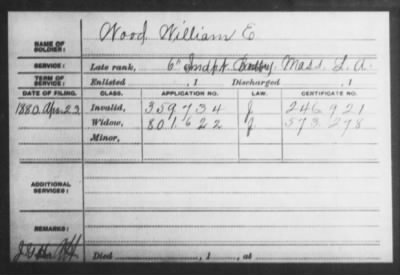 NAME OF SOLDIER: Wood William E
SERVICE: Late rank, 6" Indpt. Batty. Mass L. A.
TERM OF SERVICE: Enlisted , 1 Discharged , 1
DATE OF FILING. CLASS. APPLICATION NO. LAW. CERTIFICATE NO.
1880 Apr 23 Invalid, 359734 J. 246921
Widow, 801622 J. 573278
Minor,
ADDITIONAL SERVICES:
REMARKS:
Died , 1 , at